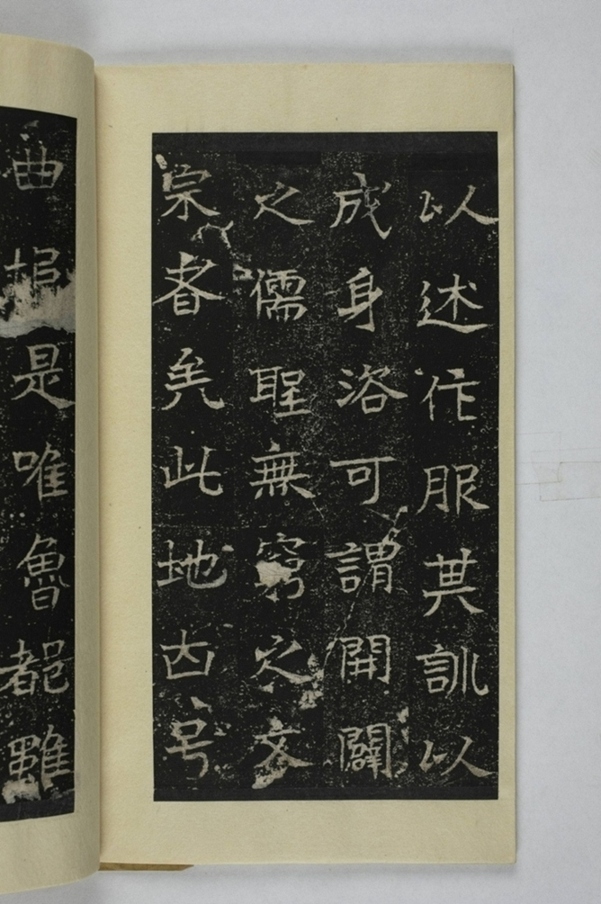 以述作服其訓以
成身洛可謂開闢
之儒聖無窮之文
宗者矣此地古号
曲埠是唯魯都雖